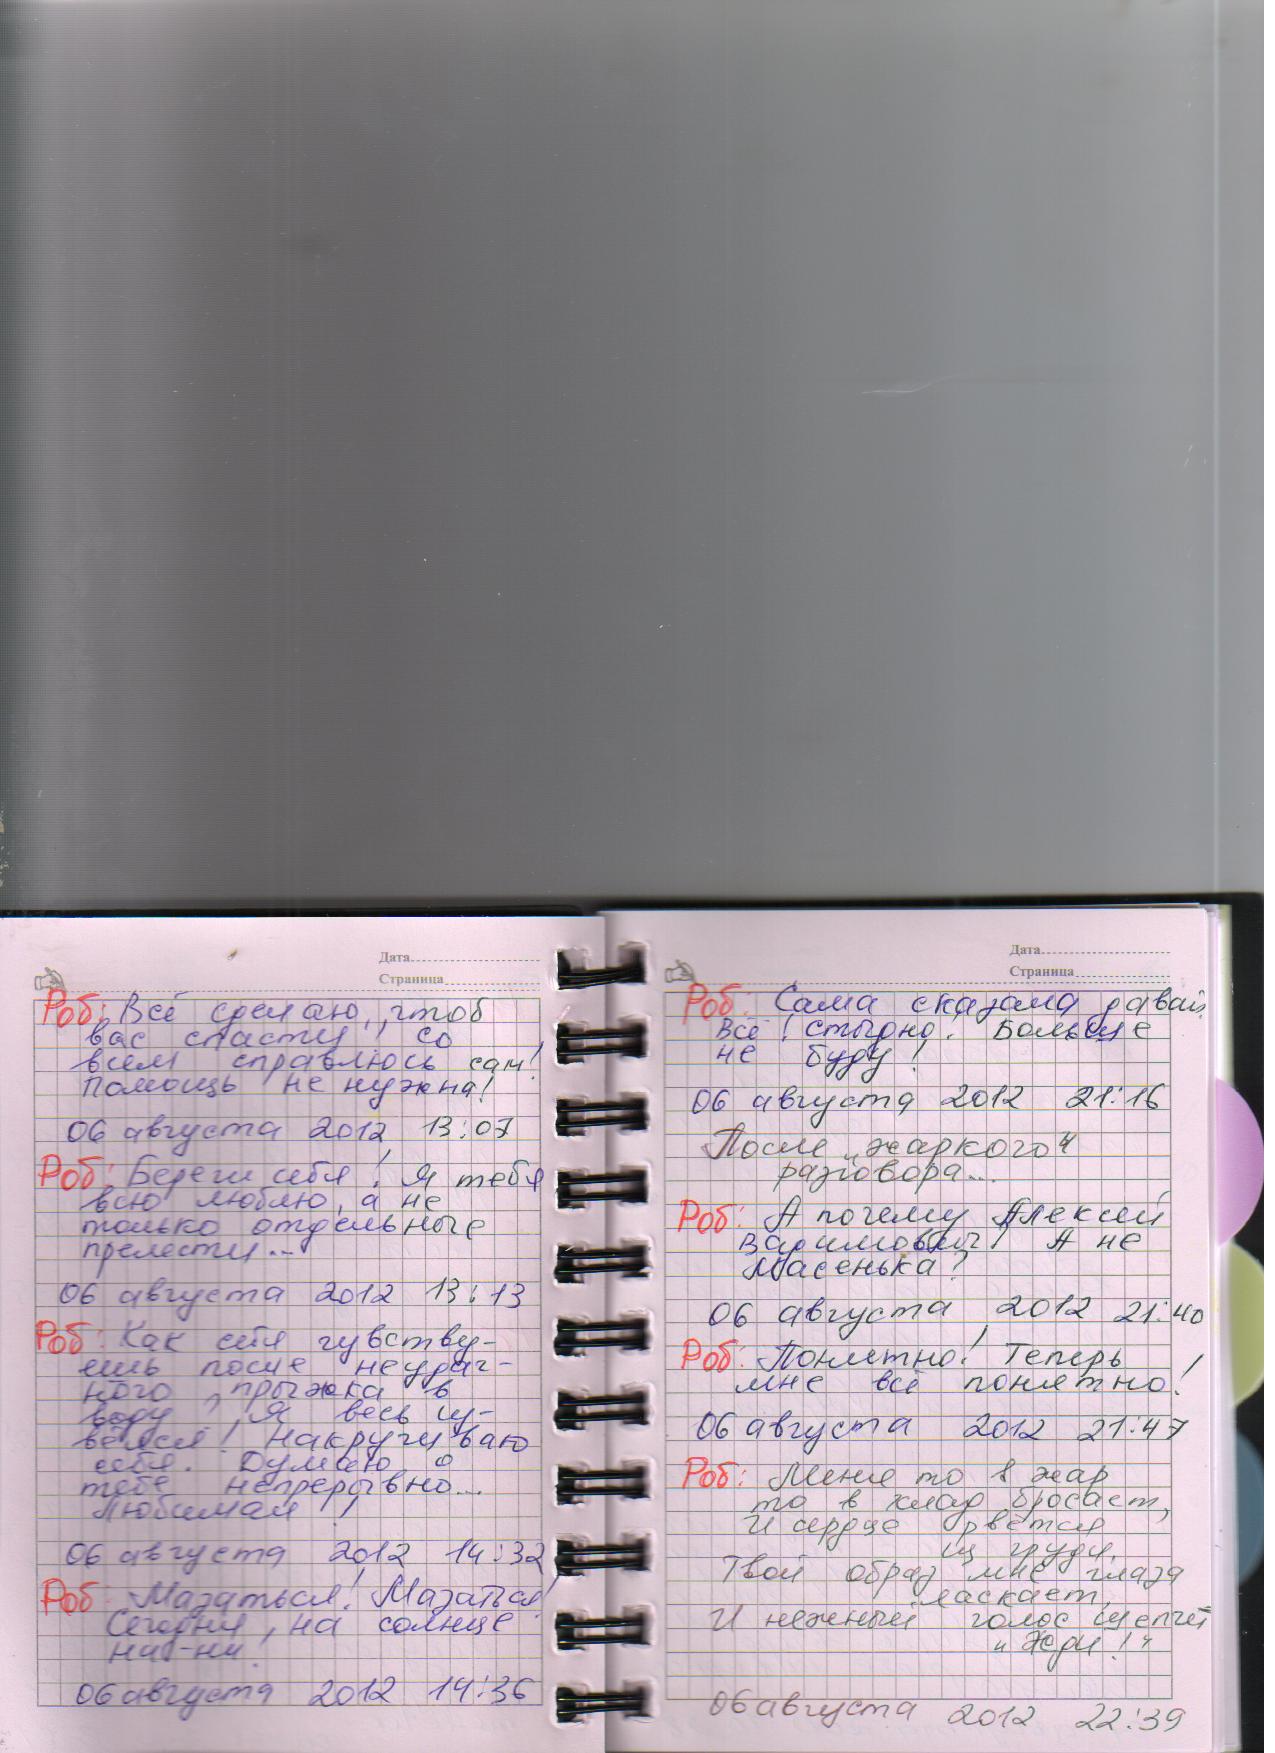 Дата
Страница
Роб: Всё сделаю, чтоб
вас спасти, со
всем справлюсь сам!
Помощь не нужна!
06 августа 2012 13:07
Роб: Береги себя! Я тебя
всю люблю, а не
только отдельные
прелести...
06 августа 2012 13:13
Роб: Как себя чувству-
ешь после неудач-
ного прыжка в
воду, Я весь из-
велся! Накручиваю
себя. Думаю о
тебе непрерывно...
Любимая!
06 августа 2012 14:32
Роб: Мазаться! Мазаться!
Сегодня, на солнце
ни-ни!
06 августа 2012 14:36
Дата
Страница
Роб: Сама сказала давай
Всё! Стыдно! Больше
не буду!
06 августа 2012 21:16
После "жаркого"
разговора...
Роб: А почему Алексей
Вадимович! А не
Масенька?
06 августа 2012 21:40
Роб: Понятно! Теперь
мне всё понятно!
06 августа 2012 21:47
Роб: Меня то в жар
то в хлад бросает,
И сердце рвётся
из груди,
Твой образ мне глаза
ласкает,
И нежный голос шепчет
"Жди!"
06 августа 2012 22:39